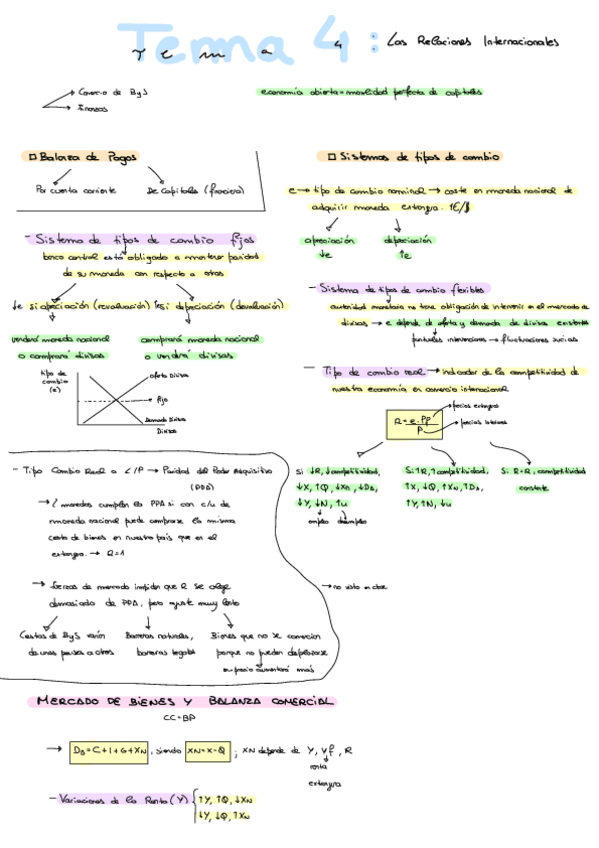 Tema 4: Las Relaciones Internacionales
T e m a 4
Comercio de ByS
Finanzas
economía abierta = movilidad perfecta de capitales
Balanza de Pagos
Por cuenta corriente
De Capitales (financiera)
Sistemas de tipos de cambio
e → tipo de cambio nominal → coste en moneda nacional de
adquirir moneda extranjera. 1€/$
apreciación
↓e
depreciación
↑e
- Sistema de tipos de cambio fijos
banco central está obligado a mantener paridad
de su moneda con respecto a otras
↓e si apreciación (revaluación)
↑e si depreciación (devaluación)
venderá moneda nacional
o comprará divisas
comprará moneda nacional
o venderá divisas
tipo de
cambio
(e)
oferta Divisa
e fijo
Demanda Divisa
Divisa
- Sistema de tipos de cambio flexibles
autoridad monetaria no tiene obligación de intervenir en el mercado de
divisas → e depende de oferta y demanda de divisas existentes
puntuales intervenciones → fluctuaciones sucias
- Tipo de cambio real → indicador de la competitividad de
nuestra economía en comercio internacional
R = e·Pf / P
precios extranjeros
precios interiores
Si ↓R, ↓competitividad,
↓X, ↑Q, ↓XN, ↓DA,
↓Y, ↓N, ↑u
empleo desempleo
Si ↑R, ↑competitividad,
↑X, ↓Q, ↑XN, ↑DA,
↑Y, ↑N, ↓u
Si R=R, competitividad
constante
- Tipo Cambio Real a L/P → Paridad del Poder Adquisitivo
(PPA)
→ 2 monedas cumplen la PPA si con c/u de
moneda nacional puede comprarse la misma
cesta de bienes en nuestro país que en el
extranjero. → R=1
→ fuerzas de mercado impiden que R se aleje
demasiado de PPA, pero ajuste muy lento
Cestas de ByS varían
de unos países a otros
Barreras naturales,
barreras legales
Bienes que no se comercian
porque no pueden desplazarse
su precio aumentará más
→ no visto en clase
MERCADO DE BIENES Y BALANZA COMERCIAL
CC=BP
→ DA = C+I+G+XN, siendo XN=X-Q; XN depende de Y, Yf, R
renta
extranjera
- Variaciones de la Renta (Y)
↑Y, ↑Q, ↓XN
↓Y, ↓Q, ↑XN